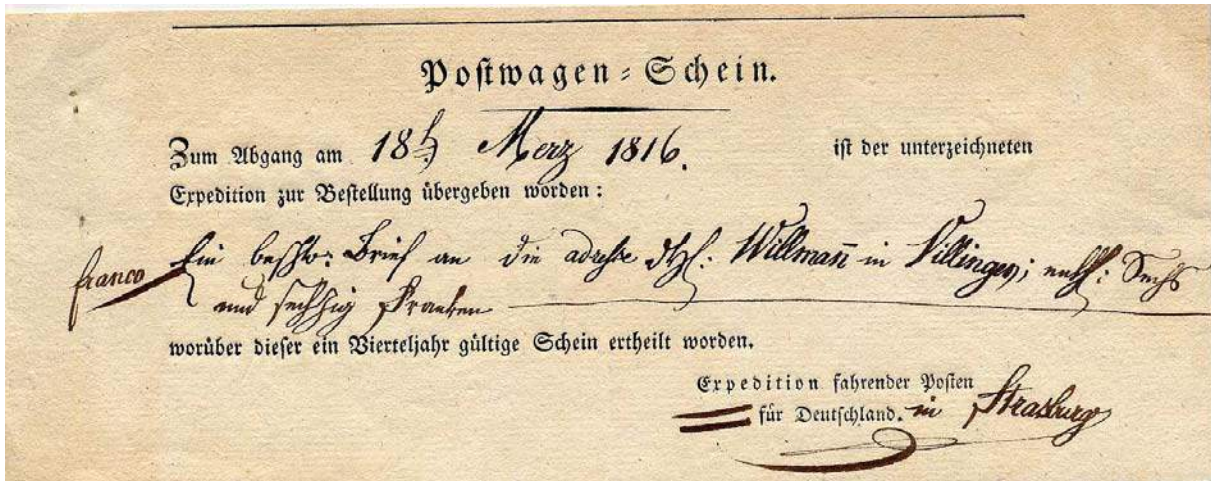 Postwagen-Schein.
Zum Abgang am 18t Merz 1816. ist der unterzeichneten
Expedition zur Bestellung übergeben worden:
franco Ein Brief an die adresse Willmañ in Villingen; enth: Sechs
und sechzig Franken
worüber dieser ein Vierteljahr gültige Schein ertheilt worden.
Expedition fahrender Posten
für Deutschland. in Strasburg